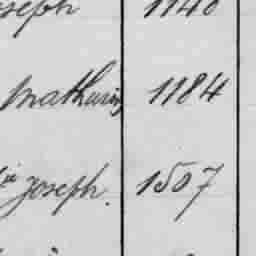 Joseph 1140
Mathurin 1184
Joseph. 1507